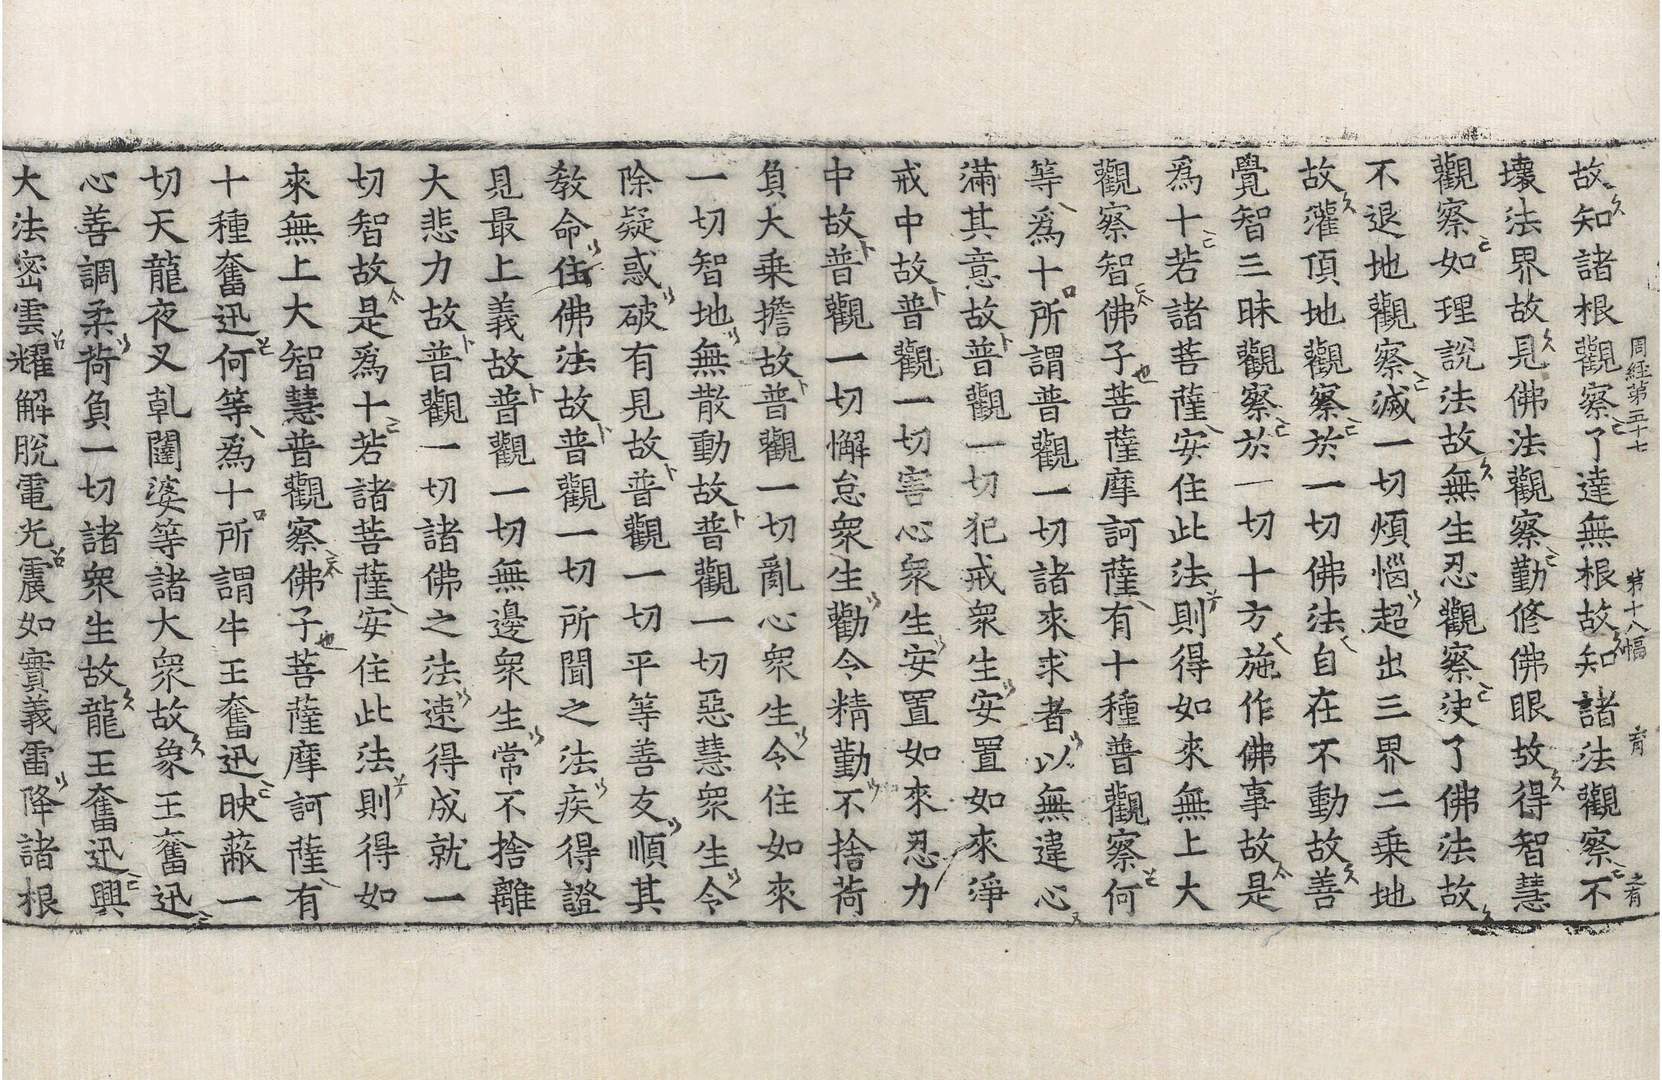 周経第五十七　第十八幅
故知諸根觀察了達無根故知諸法觀察不
壞法界故見佛法觀察勤修佛眼故得智慧
觀察如理說法故無生忍觀察决了佛法故
不退地觀察滅一切煩惱超出三界二乘地
故灌頂地觀察於一切佛法自在不動故善
覺智三昧觀察於一切十方施作佛事故是
爲十若諸菩薩安住此法則得如來無上大
觀察智佛子菩薩摩訶薩有十種普觀察何
等爲十所謂普觀一切諸來求者以無違心
滿其意故普觀一切犯戒衆生安置如來淨
戒中故普觀一切害心衆生安置如來忍力
中故普觀一切懈怠衆生勸令精勤不捨荷
負大乘擔故普觀一切亂心衆生令住如來
一切智地無散動故普觀一切惡慧衆生令
除疑惑破有見故普觀一切平等善友順其
教命住佛法故普觀一切所聞之法疾得證
見最上義故普觀一切無邊衆生常不捨離
大悲力故普觀一切諸佛之法速得成就一
切智故是爲十若諸菩薩安住此法則得如
來無上大智慧普觀察佛子菩薩摩訶薩有
十種奮迅何等爲十所謂牛王奮迅映蔽一
切天龍夜叉乹闥婆等諸大衆故象王奮迅
心善調柔荷負一切諸衆生故龍王奮迅興
大法密雲耀解脫電光震如實義雷降諸根